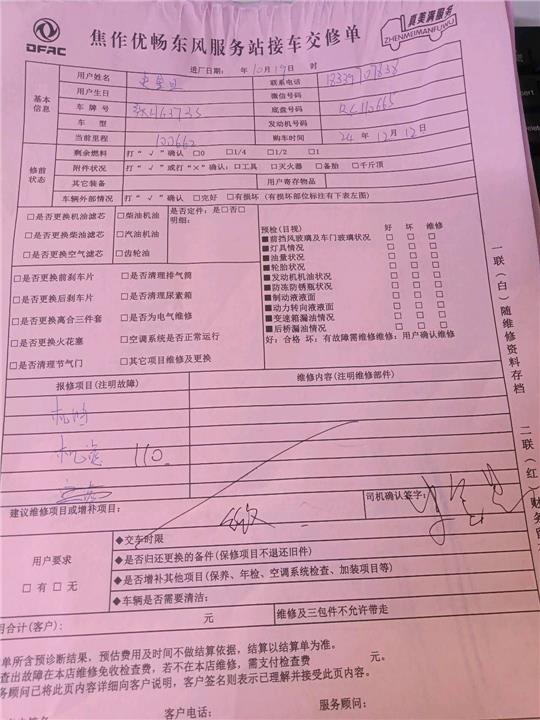 DFAC
焦作优畅东风服务站接车交修单
真美满服务
ZHENMEIMANFUWU
进厂日期: 年10月19日 时
基本信息
用户姓名
联系电话
用户生日 微信号码
车牌号 底盘号码
车型 发动机号码
当前里程 购车时间 24年12月12日
修前状态
剩余燃料 打“√”确认 □0 □1/4 □1/2 □1
附件状况 打“√”或打“×”确认:□工具 □灭火器 □备胎 □千斤顶
其它装备 用户寄存物品
车辆外部情况 打“√”确认 □完好 □有损坏(有损坏部位标注有下表左图)
□是否更换机油滤芯 □柴油机油 是否定件:是□否□
明细:
□是否更换柴油滤芯 □汽油机油
□是否更换空气滤芯 □齿轮油
□是否更换前刹车片 □是否清理排气筒
□是否更换后刹车片 □是否清理尿素箱
□是否更换离合三件套 □是否为电气维修
□是否更换火花塞 □空调系统是否正常运行
□是否清理节气门 □其它项目维修及更换
预检(目视) 好 坏 维修
■前挡风玻璃及车门玻璃状况 □ □ □
■灯具情况 □ □ □
■油量状况 □ □ □
■轮胎状况 □ □ □
■发动机机油状况 □ □ □
■防冻防锈瓶状况 □ □ □
■制动液液面 □ □ □
■动力转向液液面 □ □ □
■变速箱漏油情况 □ □ □
■后桥漏油情况 □ □ □
好:合格 坏:有故障需维修维修:用户确认维修
报修项目(注明故障) 维修内容(注明维修部件)
机滤 110
建议维修项目或增补项目:
司机确认签字:
用户要求
□有□无
◆交车时限
◆是否归还更换的备件(保修项目不退还旧件)
◆是否增补其他项目(保养、年检、空调系统检查、加装项目等)
◆车辆是否需要清洁:
用合计(客户): 元 维修及三包件不允许带走
单所含预诊断结果,预估费用及时间不做结算依据,结算以结算单为准。
查出故障在本店维修免收检查费,若不在本店维修,需支付检查费 元。
务顾问已将此页内容详细向客户说明,客户签名则表示已理解并接受此页内容。
客户电话: 服务顾问:
一联(白)随维修资料存档
二联(红)财务